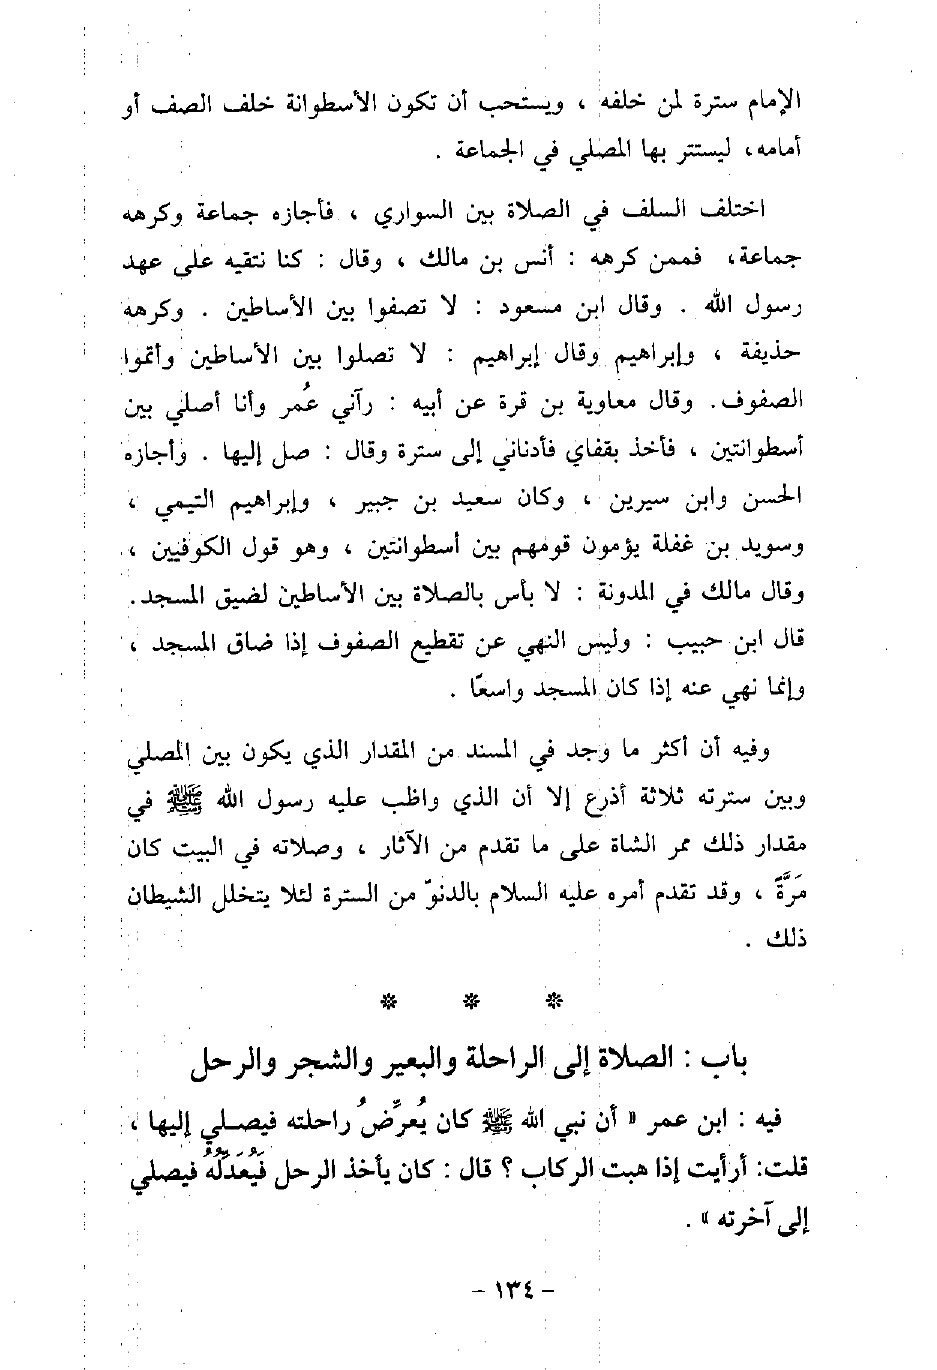 الإمام سترة لمن خلفه ، ويستحب أن تكون الأسطوانة خلف الصف أو
أمامه، ليستتر بها المصلي في الجماعة .
اختلف السلف في الصلاة بين السواري ، فأجازه جماعة وكرهه
جماعة، فممن كرهه : أنس بن مالك ، وقال : كنا نتقيه على عهد
رسول الله . وقال ابن مسعود : لا تصفوا بين الأساطين . وكرهه
حذيفة ، وإبراهيم وقال إبراهيم : لا تصلوا بين الأساطين وأتموا
الصفوف. وقال معاوية بن قرة عن أبيه : رآني عُمر وأنا أصلي بين
أسطوانتين ، فأخذ بقفاي فأدناني إلى سترة وقال : صل إليها . وأجازه
الحسن وابن سيرين ، وكان سعيد بن جبير ، وإبراهيم التيمي ،
وسويد بن غفلة يؤمون قومهم بين أسطوانتين ، وهو قول الكوفيين ،
وقال مالك في المدونة : لا بأس بالصلاة بين الأساطين لضيق المسجد.
قال ابن حبيب : وليس النهي عن تقطيع الصفوف إذا ضاق المسجد ،
وإنما نهي عنه إذا كان المسجد واسعًا .
وفيه أن أكثر ما وجد في المسند من المقدار الذي يكون بين المصلي
وبين سترته ثلاثة أذرع إلا أن الذي واظب عليه رسول الله ﷺ في
مقدار ذلك ممر الشاة على ما تقدم من الآثار ، وصلاته في البيت كان
مَرَّةً ، وقد تقدم أمره عليه السلام بالدنوّ من السترة لئلا يتخلل الشيطان
ذلك .
* * *
باب : الصلاة إلى الراحلة والبعير والشجر والرحل
فيه : ابن عمر « أن نبي الله ﷺ كان يُعرِّضُ راحلته فيصلي إليها ،
قلت: أرأيت إذا هبت الركاب ؟ قال : كان يأخذ الرحل فَيُعَدِّلُهُ فيصلي
إلى آخرته » .
- ١٣٤ -